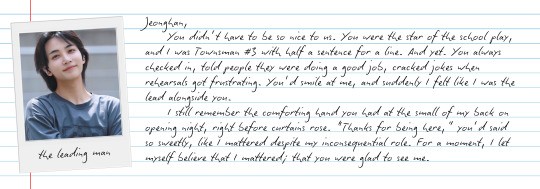 Jeonghan,
You didn't have to be so nice to us. You were the star of the school play,
and I was Townsman #3 with half a sentence for a line. And yet. You always
checked in, told people they were doing a good job, cracked jokes when
rehearsals got frustrating. You'd smile at me, and suddenly I felt like I was the
lead alongside you.
I still remember the comforting hand you had at the small of my back on
opening night, right before curtains rose. "Thanks for being here," you'd said
so sweetly, like I mattered despite my inconsequential role. For a moment, I let
myself believe that I mattered; that you were glad to see me.
the leading man